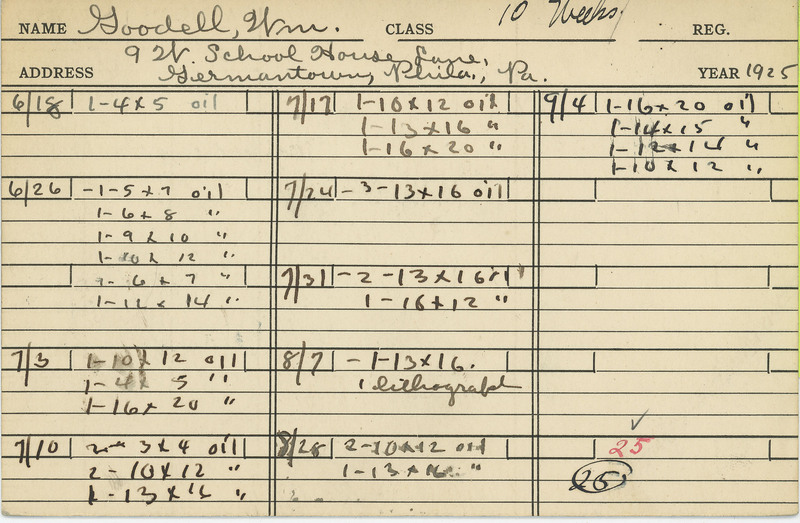 NAME Goodell, Wm. CLASS 10 Weeks REG.
ADDRESS 9 W. School House Lane,
Germantown, Phila., Pa. YEAR 1925
6/18 1-4x5 oil
6/26 -1-5x7 oil
1-6x8 "
1-9x10 "
1-10x12 "
1-6x7 "
14 "
7/3 1-10x12 oil
1-4x5 "
1-16x20 "
7/10 3x4 oil
2-10x12 "
1-13x16 "
7/17 1-10x12 oil
1-13x16 "
1-16x20 "
7/24 -3-13x16 oil
7/31 -2-13x16 oil
1-16x12 "
8/7 -1-13x16.
1 lithograph
8/28 2-10x12 oil
1-13x16 "
9/4 1-16x20 oil
1-14x15 "
1-12x14 "
1-10x12 "
25
25